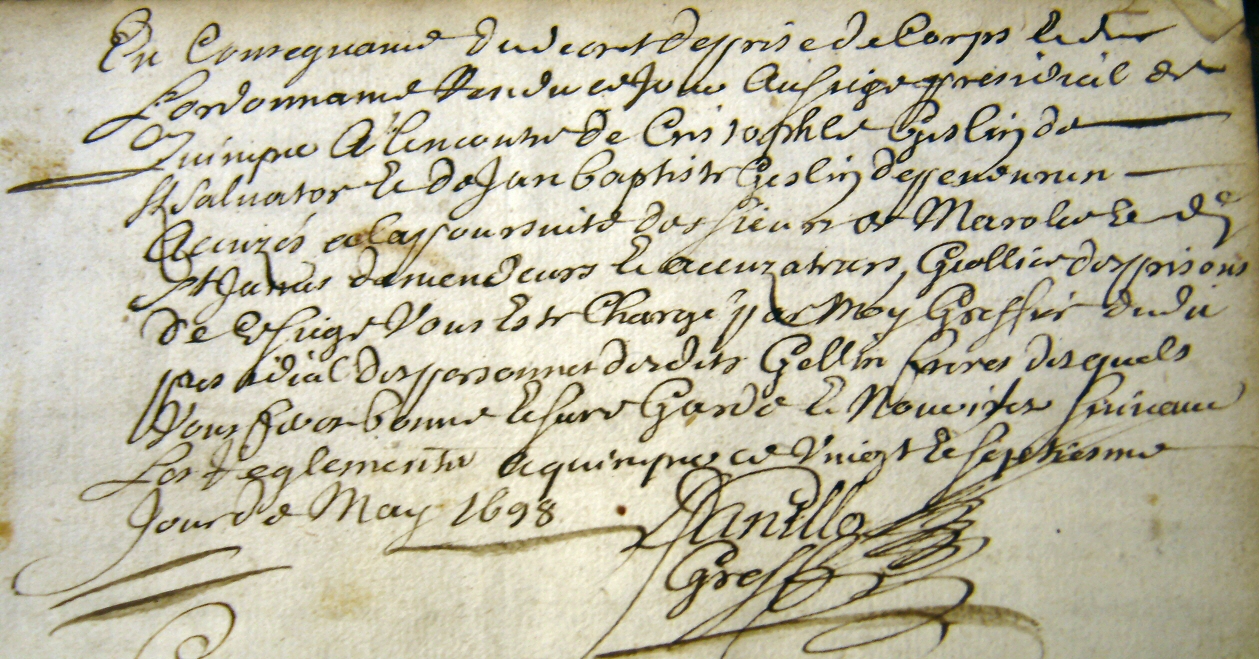 En Consequance du decret de prise de Corps Et de
Lordonnance Randu ce Jour Au siege presidial de
Quimper A lencontre de Cristophle Geslin de
St Salvator Et de Jan baptiste Geslin de
Accuzés a la poursuitte des sieurs de Et de
St James demendeurs Et accuzateurs, Geollier des prisons
de Ce siege Vous Estes Chargé par Moy Greffier dudit
presidial des personnes desdits Gellin freres desquels
Vous ferez bonne Et sure Garde Et Nouriture suivant
Les Reglements a quimper ce Vingt Et septiesme
Jour de May 1698
Danillo
Greff